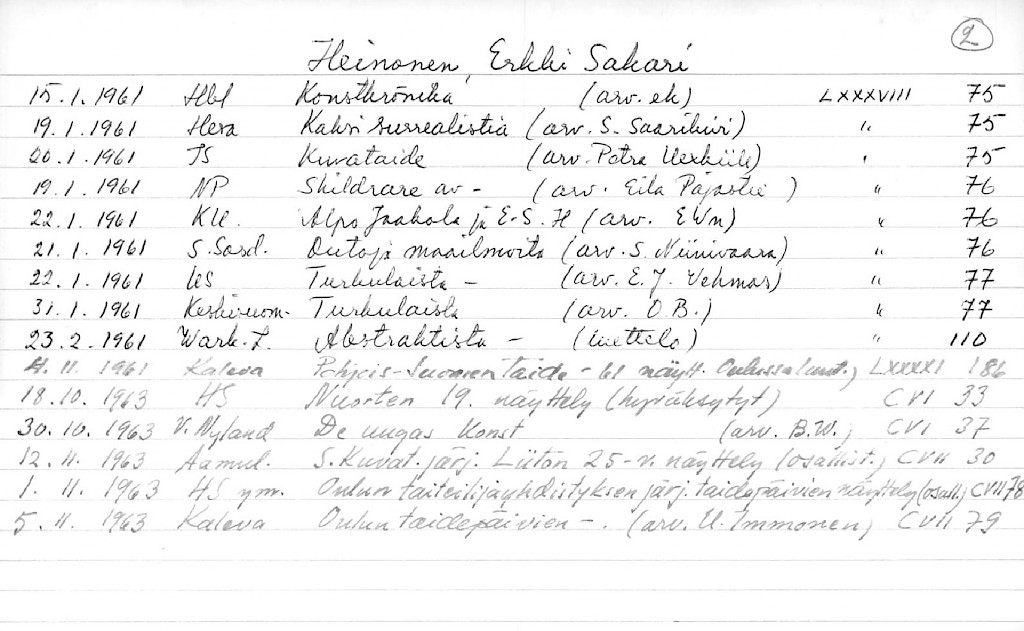 2
Heinonen, Erkki Sakari
15.1.1961 Hbl Konstkrönika (arv. ek) LXXXVIII 75
19.1.1961 Hera Kaksi surrealistia (arv. S. Saarikivi) " 75
20.1.1961 TS Kuvataide (arv. Petra Uexküll) " 75
19.1.1961 NP Skildrare av - (arv. Eila Pajastie) " 76
22.1.1961 KU. Alpo Jaakola ja E.S.H (arv. EWn) " 76
21.1.1961 S.Sosd. Outoja maailmoita (arv. S. Niinivaara) " 76
22.1.1961 US Turkulaista - (arv. E.J. Vehmas) " 77
31.1.1961 Keskisuom. Turkulaista (arv. O.B.) " 77
23.2.1961 Wark. L. Abstraktista - (luettelo) " 110
4.11.1961 Kaleva Pohjois-Suomen Taide - 61 näytt. Oulussa LXXXXI 186
18.10.1963 HS Nuorten 19. näyttely (hyväksytyt) CVI 33
30.10.1963 V. Nyland De ungas Konst (arv. B.W.) CVI 37
12.11.1963 Aamul. S. Kuvat. järj. Liiton 25-v. näyttely (osallist.) CVII 30
1.11.1963 HS ym. Oulun taiteilijayhdistyksen järj. taidepäivien näyttely (osall.) CVII 78
5.11.1963 Kaleva Oulun taidepäivien -. (arv. U. Immonen) CVII 79